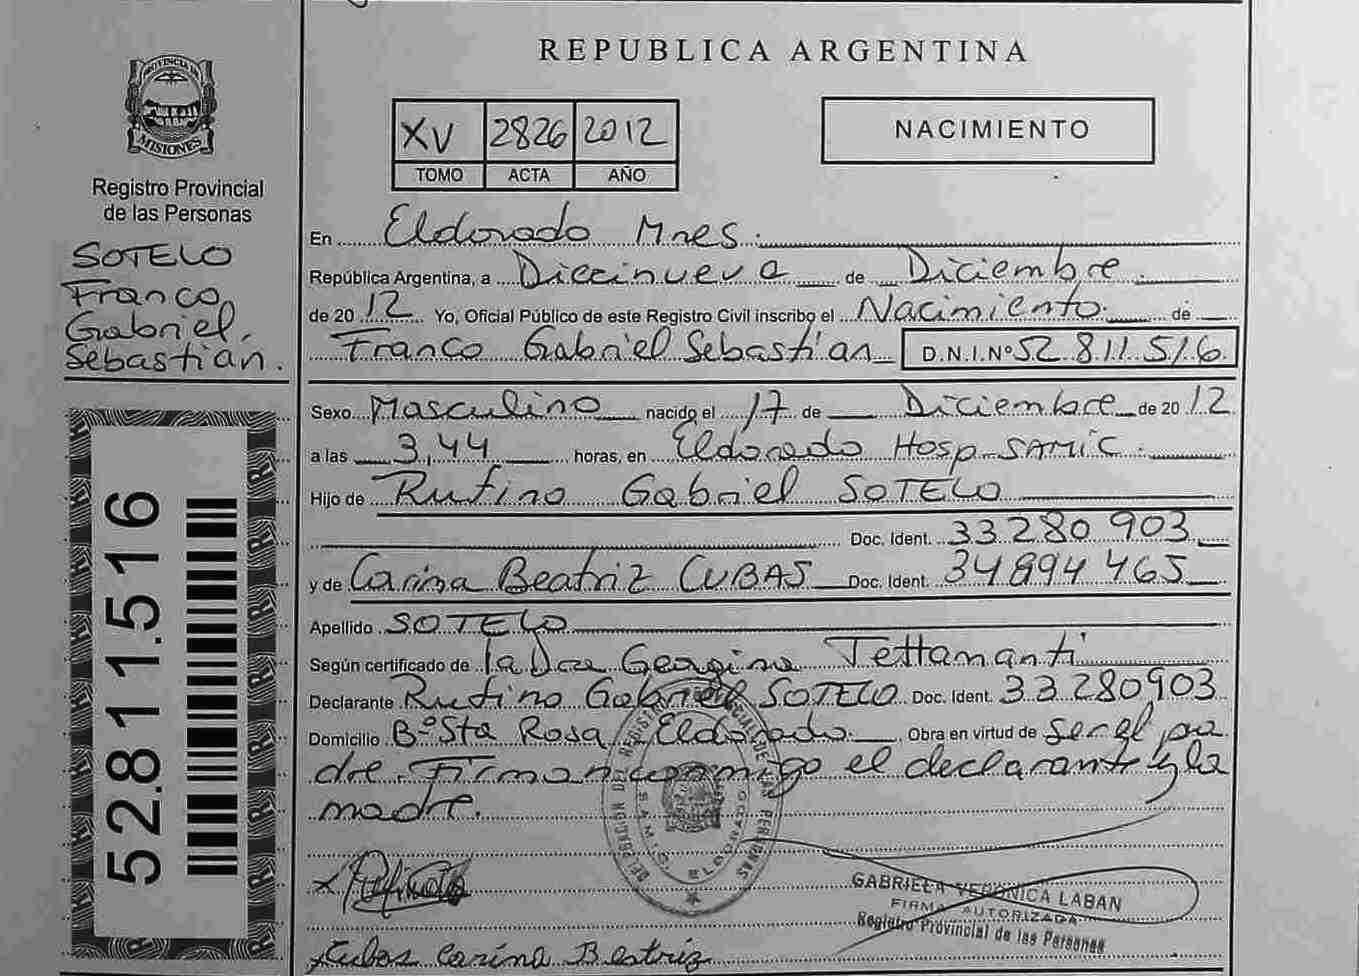 REPUBLICA ARGENTINA
PROVINCIA DE
MISIONES
Registro Provincial
de las Personas
SOTELO
Franco
Gabriel,
Sebastian.
52.811.516
XV 2826 2012
TOMO ACTA AÑO
NACIMIENTO
En Eldorado Mnes.
República Argentina, a Diecinueve de Diciembre
de 2012 Yo, Oficial Público de este Registro Civil inscribo el Nacimiento de
Franco Gabriel Sebastian D.N.I.Nº 52 811 516
Sexo Masculino nacido el 17 de Diciembre de 2012
a las 3,44 horas, en Eldorado Hosp SAMIC.
Hijo de Rufino Gabriel SOTELO
Doc. Ident. 33 280 903
y de Carina Beatriz CUBAS Doc. Ident. 34894465
Apellido SOTELO
Según certificado de la Dra Georgina Tettamanti
Declarante Rufino Gabriel SOTELO Doc. Ident. 33280903
Domicilio Bº Sta Rosa Eldorado. Obra en virtud de ser el pa
dre. Firman conmigo el declarante y la
madre.
DELEGACIÓN DEL REGISTRO PROVINCIAL DE LAS PERSONAS
SAMIC ELDORADO
GABRIELA VERONICA LABAN
FIRMA AUTORIZADA
Registro Provincial de las Personas
x
Cubas Carina Beatriz